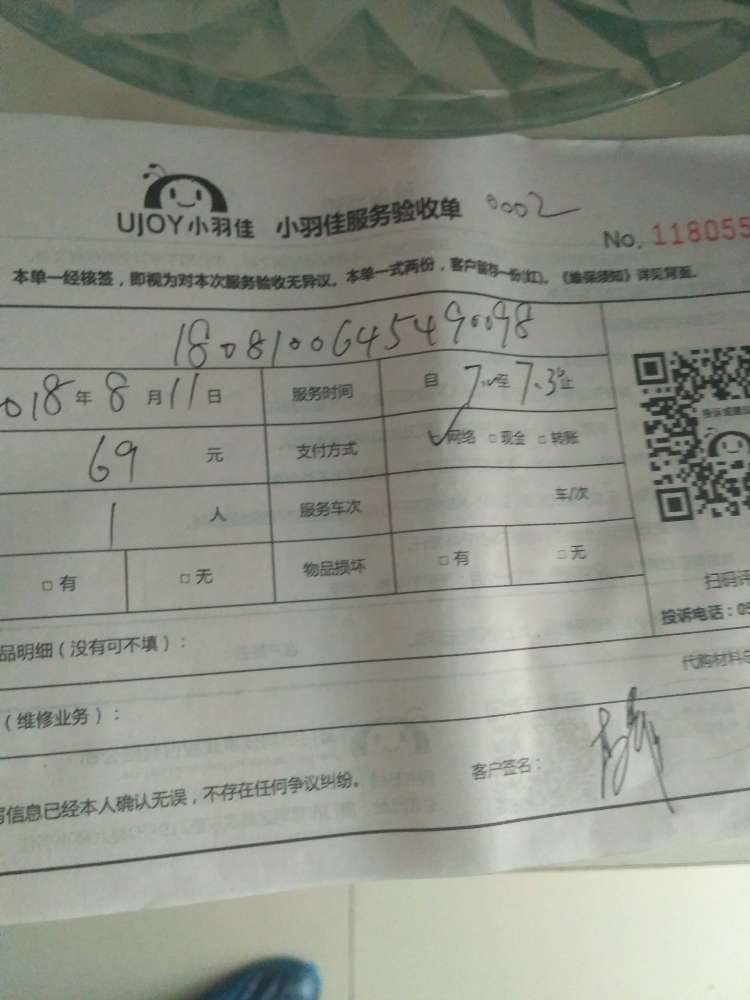 UJOY小羽佳 小羽佳服务验收单 0002
No. 118055
本单一经核签，即视为对本次服务验收无异议。本单一式两份，客户留存一份(红)。《维保须知》详见背面。
1808100645490098
018年8月11日 服务时间 自 7.00至 7.30止
69 元 支付方式 ☑网络 □现金 □转账
1 人 服务车次 车/次
□有 □无 物品损坏 □有 □无
扫码评
投诉电话：05
品明细（没有可不填）：
代购材料总
（维修业务）：
客户签名：
写信息已经本人确认无误，不存在任何争议纠纷。